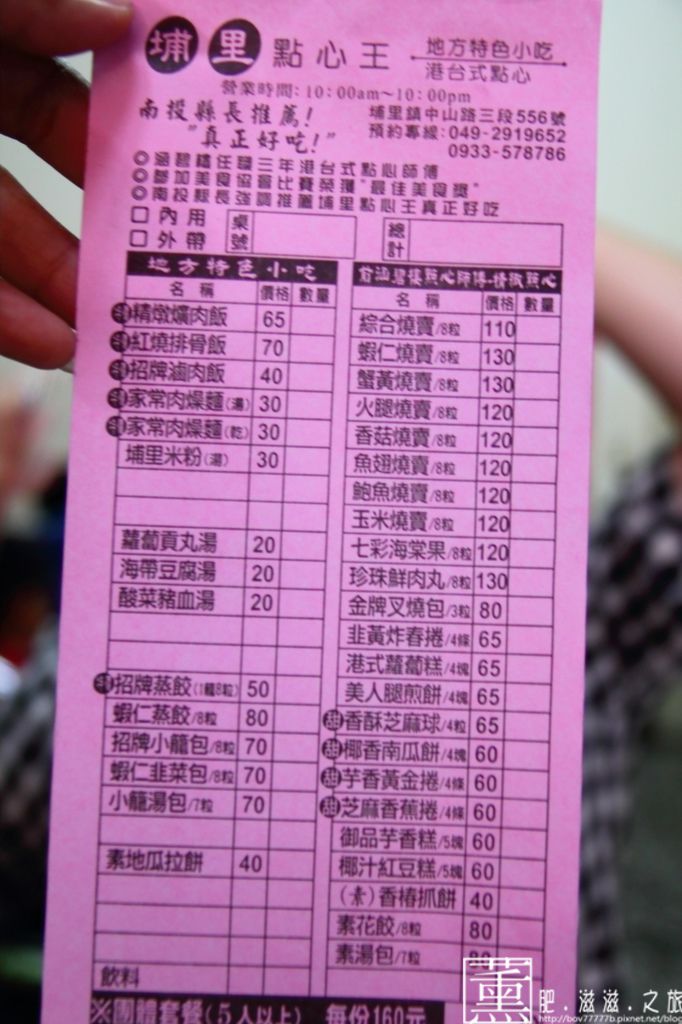 埔里 點心王 地方特色小吃
港台式點心
營業時間:10:00am~10:00pm
南投縣長推薦! 埔里鎮中山路三段556號
"真正好吃!" 預約專線:049-2919652
0933-578786
◎涵碧樓任職三年港台式點心師傅
◎參加美食協會比賽榮獲"最佳美食獎"
◎南投縣長強調推薦埔里點心王真正好吃
□內用 桌號 總計
□外帶
地方特色小吃
名稱 價格 數量
精燉爌肉飯 65
紅燒排骨飯 70
招牌滷肉飯 40
家常肉燥麵(湯) 30
家常肉燥麵(乾) 30
埔里米粉(湯) 30
蘿蔔貢丸湯 20
海帶豆腐湯 20
酸菜豬血湯 20
招牌蒸餃(1籠8粒) 50
蝦仁蒸餃/8粒 80
招牌小籠包/8粒 70
蝦仁韭菜包/8粒 70
小籠湯包/7粒 70
素地瓜拉餅 40
飲料
前涵碧樓點心師傅-精緻點心
名稱 價格 數量
綜合燒賣/8粒 110
蝦仁燒賣/8粒 130
蟹黃燒賣/8粒 130
火腿燒賣/8粒 120
香菇燒賣/8粒 120
魚翅燒賣/8粒 120
鮑魚燒賣/8粒 120
玉米燒賣/8粒 120
七彩海棠果/8粒 120
珍珠鮮肉丸/8粒 130
金牌叉燒包/3粒 80
韭黃炸春捲/4條 65
港式蘿蔔糕/4塊 65
美人腿煎餅/4塊 65
甜 香酥芝麻球/4粒 65
甜 椰香南瓜餅/4塊 60
甜 芋香黃金捲/4條 60
甜 芝麻香蕉捲/4條 60
御品芋香糕/5塊 60
椰汁紅豆糕/5塊 60
(素)香椿抓餅 40
素花餃/8粒 80
素湯包/7粒 80
※團體套餐(5人以上) 每份160元
薰 肥.滋滋.之旅
http://bov77777b.pixnet.net/blog